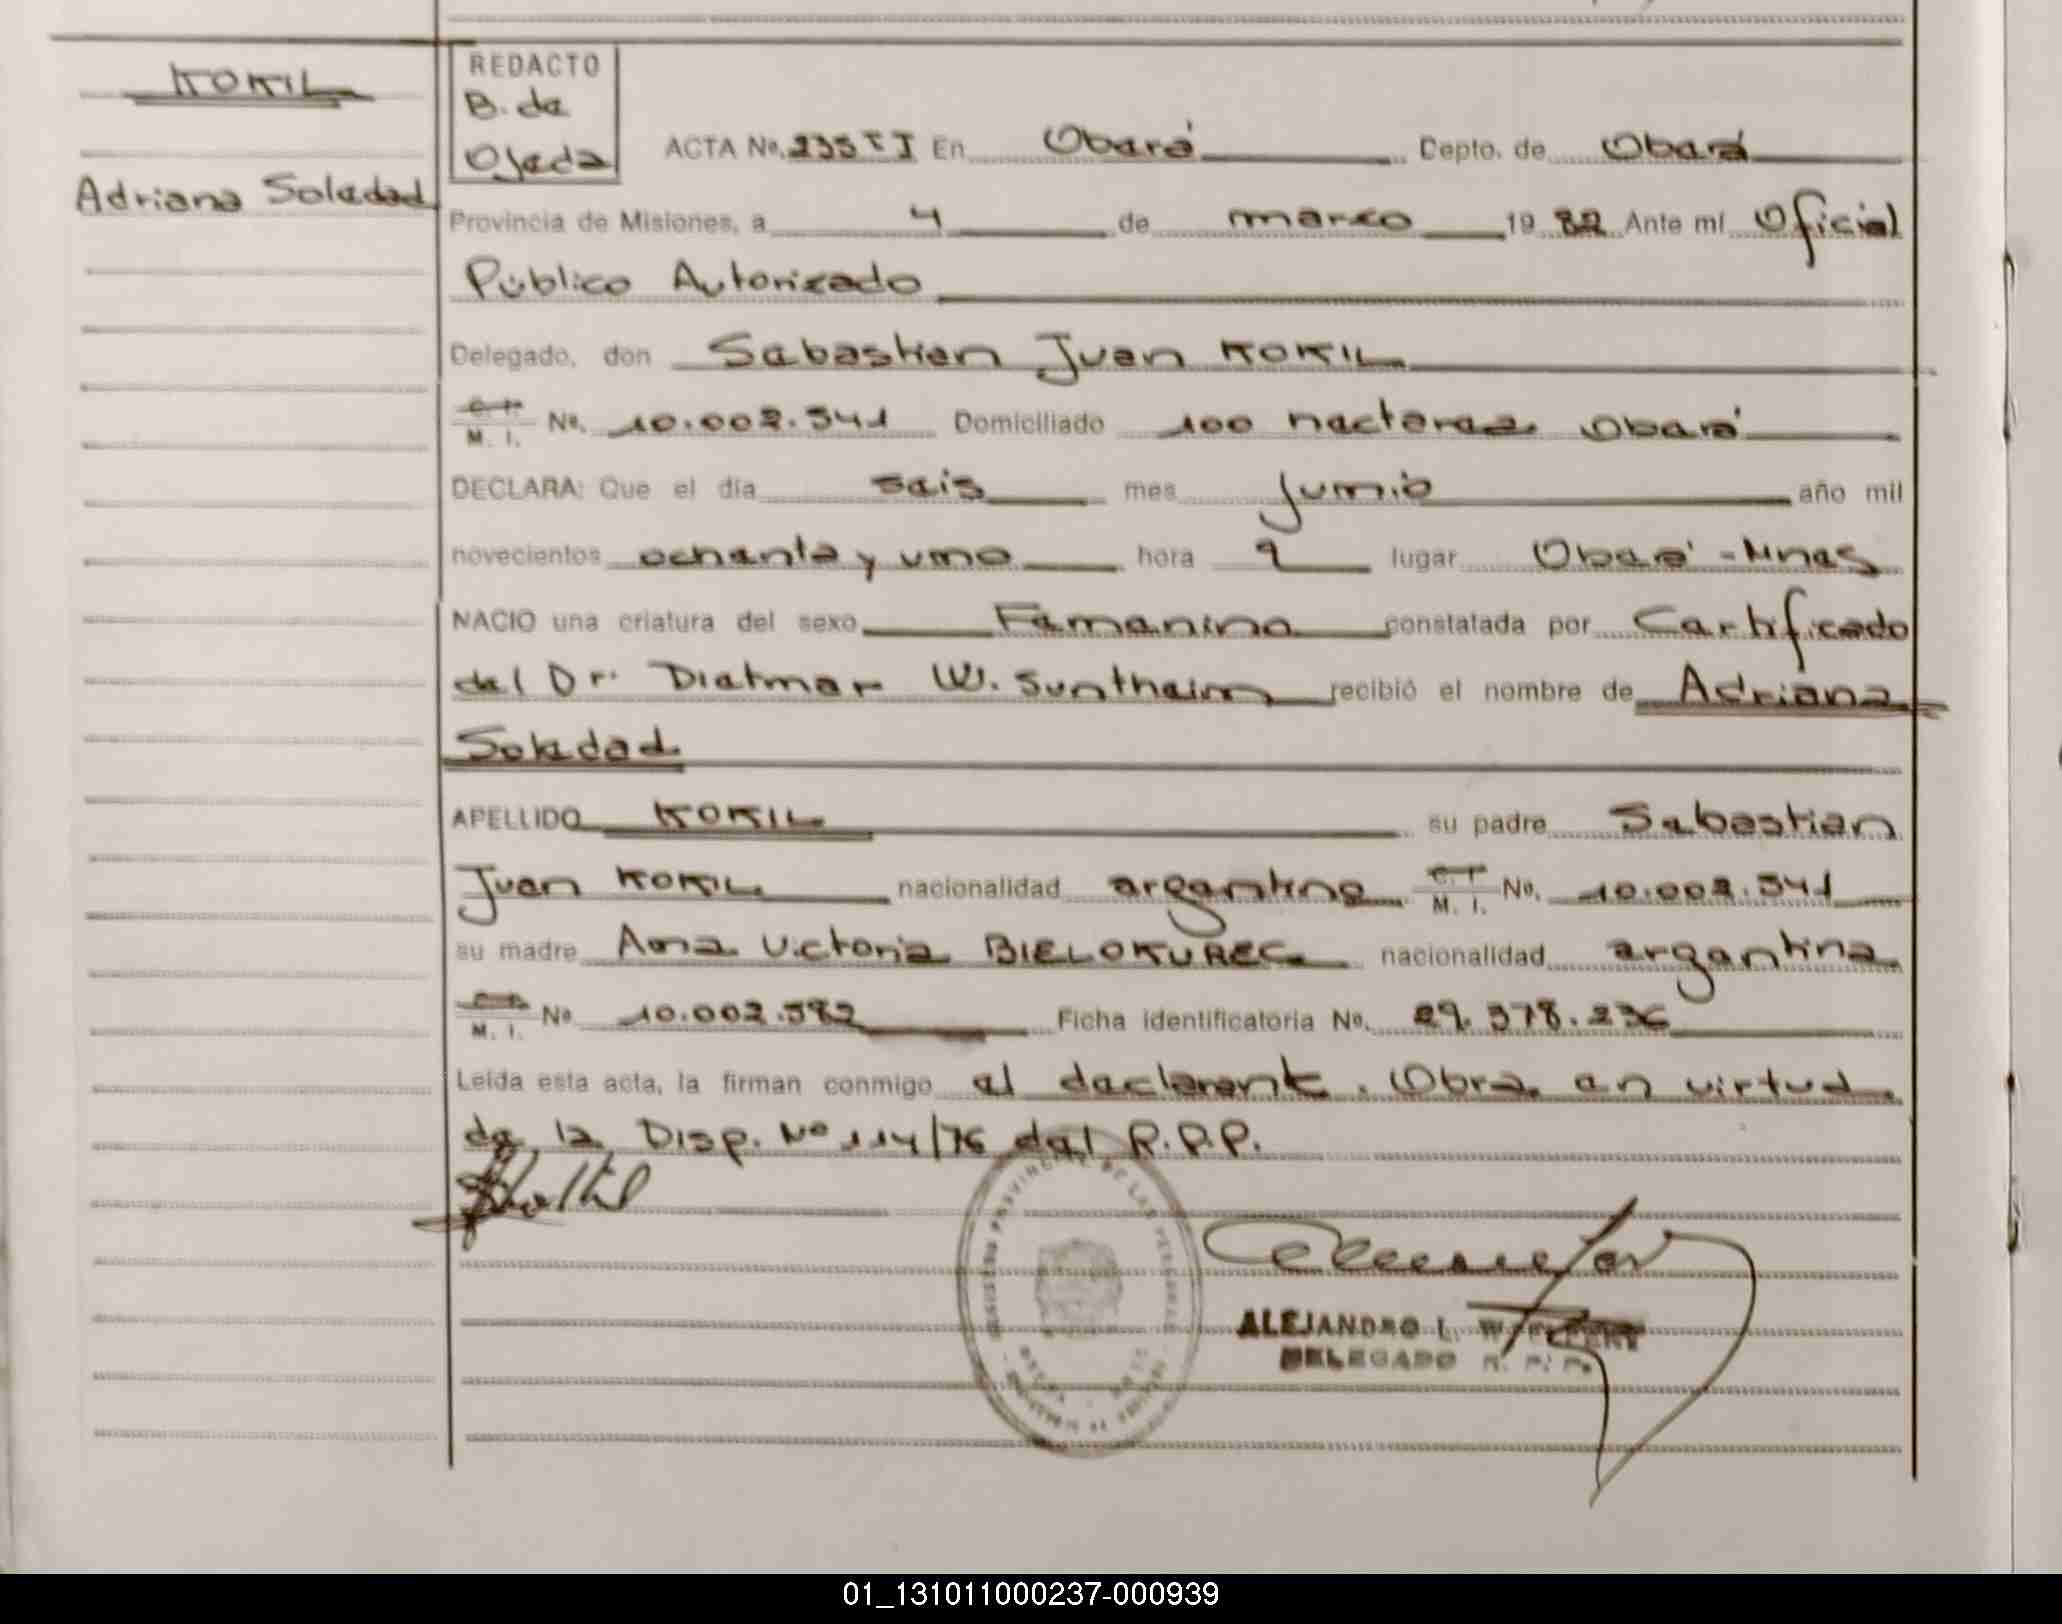 KOKIL
Adriana Soledad
REDACTO
B. de
Ojeda
ACTA No. 235 T I En Oberá Depto. de Oberá
Provincia de Misiones, a 4 de marzo 19 82 Ante mí Oficial
Público Autorizado
Delegado, don Sebastian Juan KOKIL
C. I. M. I. No. 10.002.341 Domiciliado 100 hectareas Oberá
DECLARA: Que el día seis mes junio año mil
novecientos ochenta y uno hora 9 lugar Oberá - Mnes
NACIO una criatura del sexo Femenino constatada por Certificado
del Dr. Dietmar W. Suntheim recibió el nombre de Adriana
Soledad
APELLIDO KOKIL su padre Sebastian
Juan KOKIL nacionalidad argentina C. I. M. I. No. 10.002.341
su madre Ana Victoria BIELOKUREC nacionalidad argentina
C. I. M. I. No 10.002.382 Ficha identificatoria No. 29.378.236
Leída esta acta, la firman conmigo el declarante. Obra en virtud
de la Disp. Nº 114/76 del R.P.P.
REGISTRO PROVINCIAL DE LAS PERSONAS
ALEJANDRO L.
DELEGADO R. P. P.
01_131011000237-000939